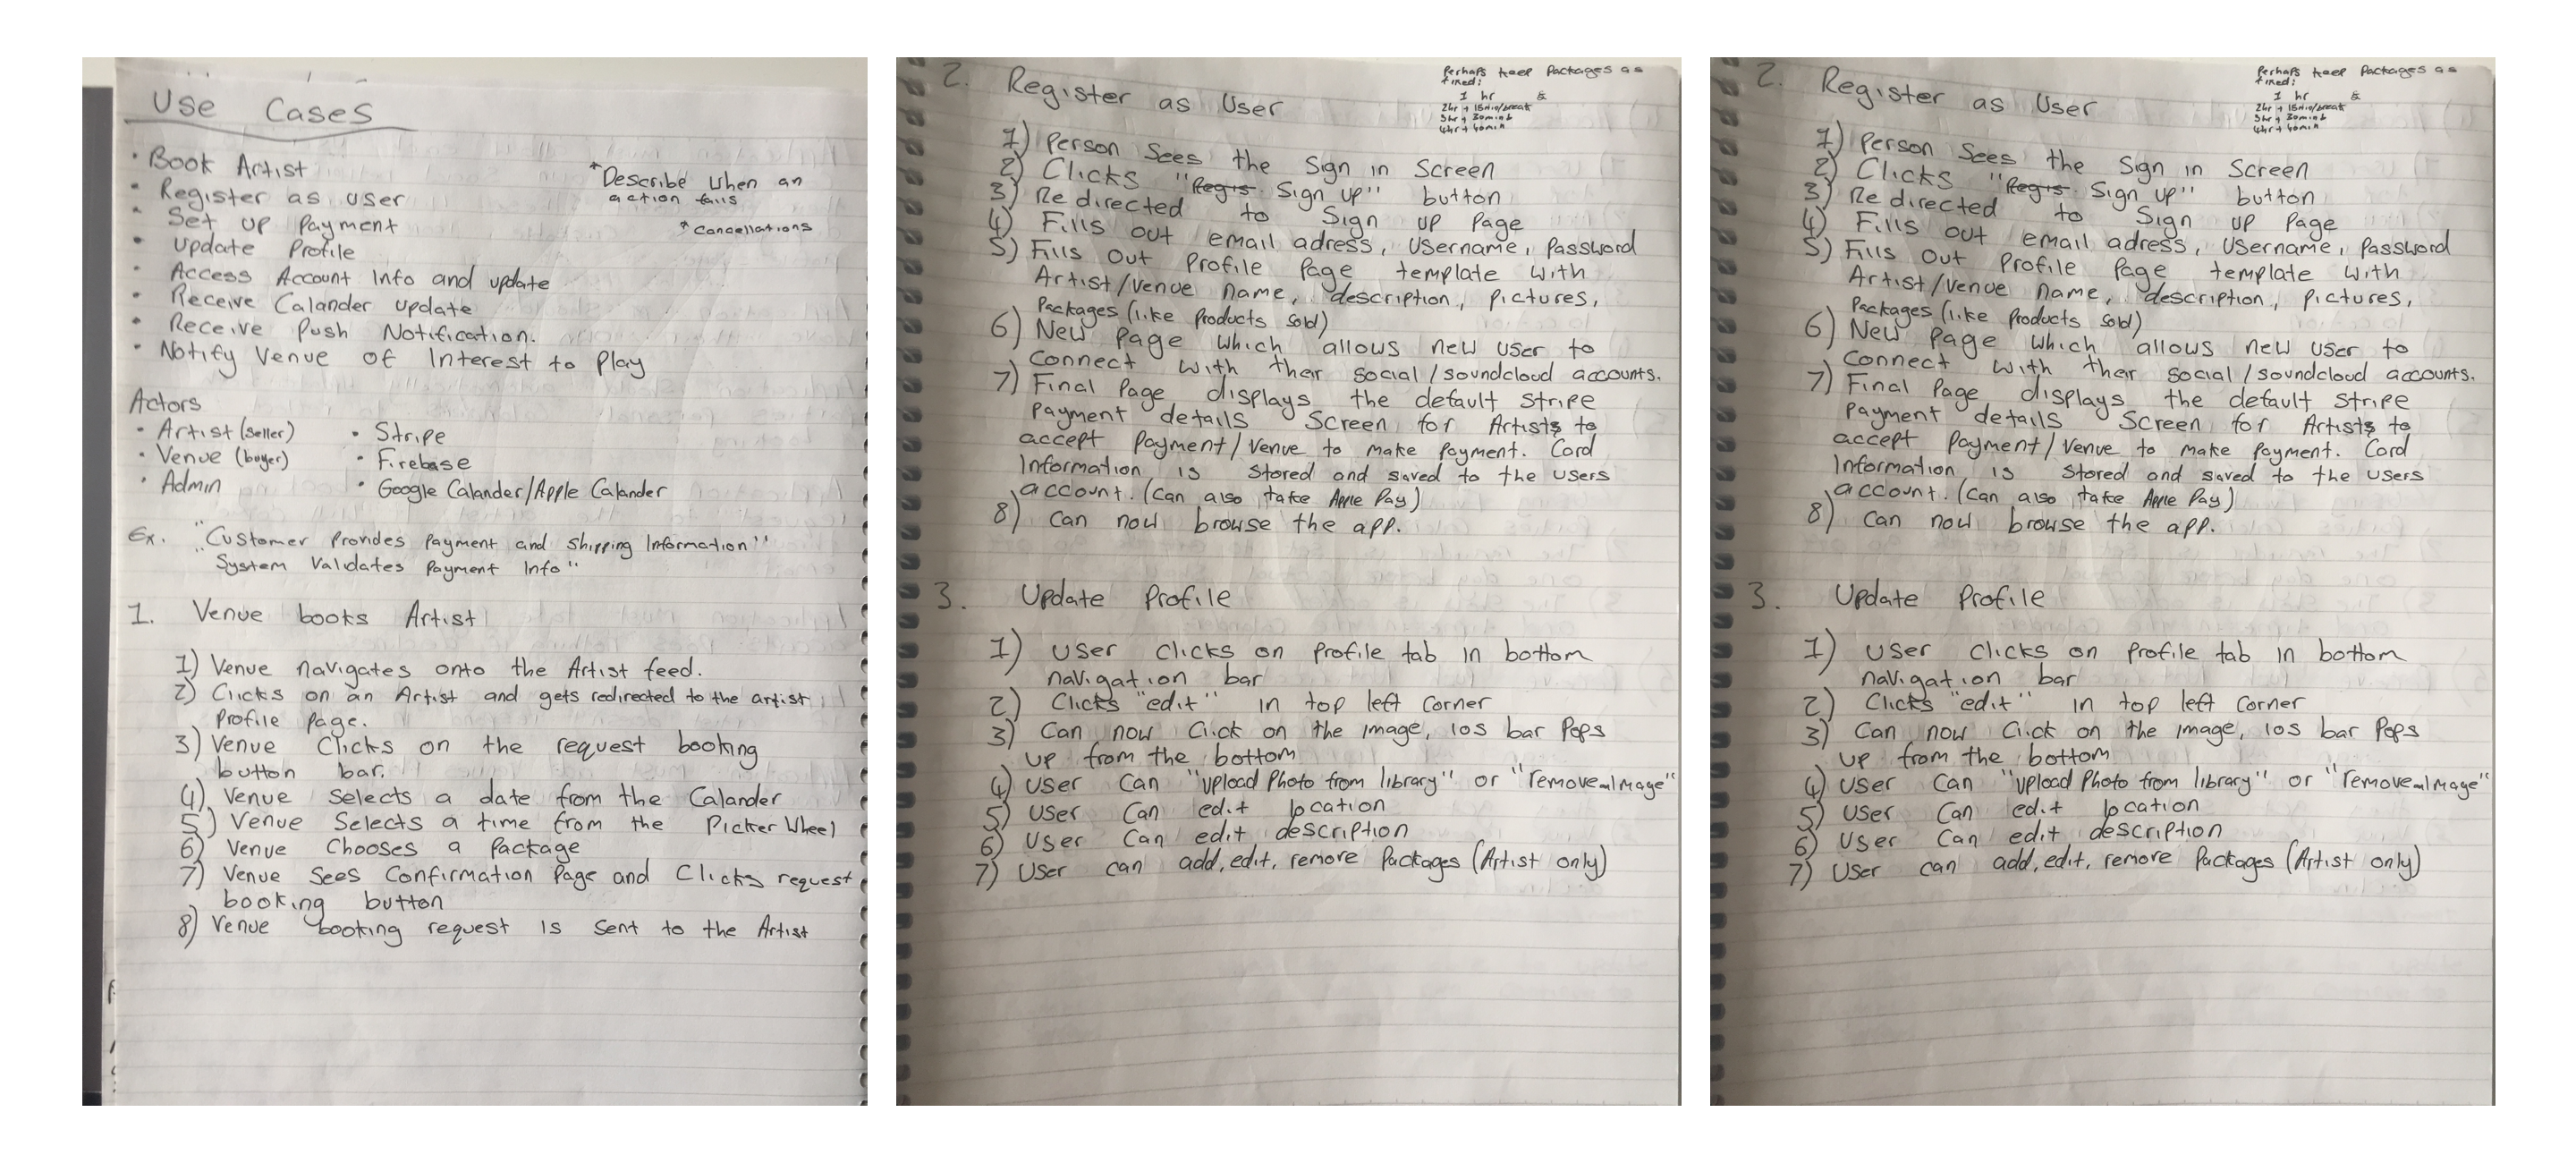 Use Cases
• Book Artist
• Register as user
• Set up Payment
• Update Profile
• Access Account Info and update
• Receive Calander update
• Receive Push Notification.
• Notify Venue of Interest to Play
*Describe when an
action fails
* Cancellations
Actors
• Artist (seller)
• Venue (buyer)
• Admin
• Stripe
• Firebase
• Google Calander/Apple Calander
Ex. "Customer Provides Payment and Shipping Information"
"System Validates Payment Info"
1. Venue books Artist
1) Venue navigates onto the Artist feed.
2) Clicks on an Artist and gets redirected to the artist
Profile page.
3) Venue Clicks on the request booking
button bar.
4) Venue Selects a date from the Calander
5) Venue Selects a time from the Picker Wheel
6) Venue Chooses a Package
7) Venue Sees Confirmation Page and Clicks request
booking button
8) Venue booking request is sent to the Artist
2. Register as User
Perhaps keep Packages as
fixed:
1 hr &
2hr + 15min/break
3hr + 30min b
4hr + 40min
1) Person Sees the Sign in Screen
2) Clicks "Regis Sign up" button
3) Redirected to Sign up Page
4) Fills out email adress, Username, Password
5) Fills out Profile Page template with
Artist/Venue name, description, pictures,
Packages (like Products sold)
6) New Page which allows new user to
connect with their social/soundcloud accounts.
7) Final Page displays the default Stripe
Payment details Screen for Artists to
accept Payment/Venue to make Payment. Card
Information is Stored and saved to the users
account. (Can also take Apple Pay)
8) Can now browse the app.
3. Update Profile
1) User clicks on Profile tab in bottom
navigation bar
2) Clicks "edit" in top left corner
3) Can now Click on the image, ios bar Pops
up from the bottom
4) User Can "Upload Photo from library" or "remove image"
5) User Can edit location
6) User Can edit description
7) User can add, edit, remove Packages (Artist only)
2. Register as User
Perhaps keep Packages as
fixed:
1 hr &
2hr + 15min/break
3hr + 30min b
4hr + 40min
1) Person Sees the Sign in Screen
2) Clicks "Regis Sign up" button
3) Redirected to Sign up Page
4) Fills out email adress, Username, Password
5) Fills out Profile Page template with
Artist/Venue name, description, pictures,
Packages (like Products sold)
6) New Page which allows new user to
connect with their social/soundcloud accounts.
7) Final Page displays the default Stripe
Payment details Screen for Artists to
accept Payment/Venue to make Payment. Card
Information is Stored and saved to the users
account. (Can also take Apple Pay)
8) Can now browse the app.
3. Update Profile
1) User clicks on Profile tab in bottom
navigation bar
2) Clicks "edit" in top left corner
3) Can now Click on the image, ios bar Pops
up from the bottom
4) User Can "Upload Photo from library" or "remove image"
5) User Can edit location
6) User Can edit description
7) User can add, edit, remove Packages (Artist only)